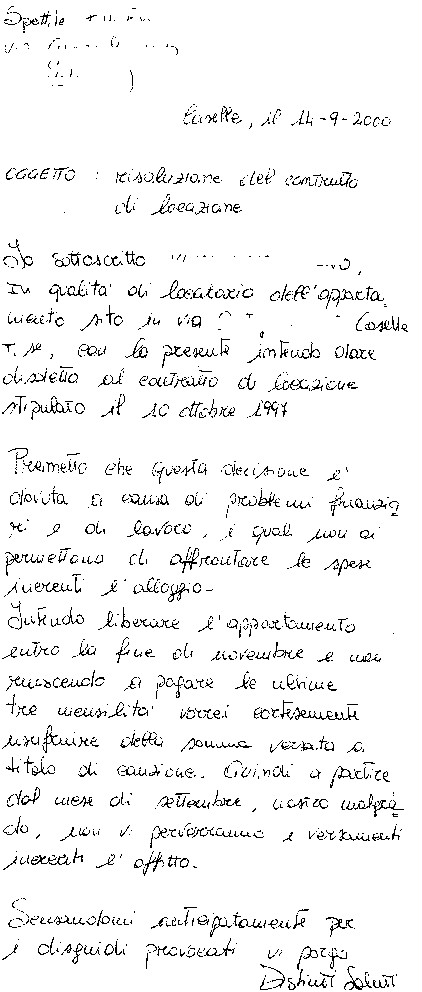 Spett.le
via
Caselle, il 14-9-2000
OGGETTO : risoluzione del contratto
di locazione
Io sottoscritto
In qualità di locatario dell'apparta
mento sito in via Caselle
T.se, con la presente intendo dare
disdetta al contratto di locazione
stipulato il 10 ottobre 1997
Premetto che questa decisione è
dovuta a causa di problemi finanzia
ri e di lavoro, i quali non ci
permettono di affrontare le spese
inerenti l'alloggio-
Intendo liberare l'appartamento
entro la fine di novembre e non
riuscendo a pagare le ultime
tre mensilità vorrei cortesemente
usufruire della somma versata a
titolo di cauzione. Quindi a partire
dal mese di settembre, nostro malgra
do, non vi perverranno i versamenti
inerenti l'affitto.
Scusandomi anticipatamente per
i disguidi provocati vi porgo
Distinti Saluti